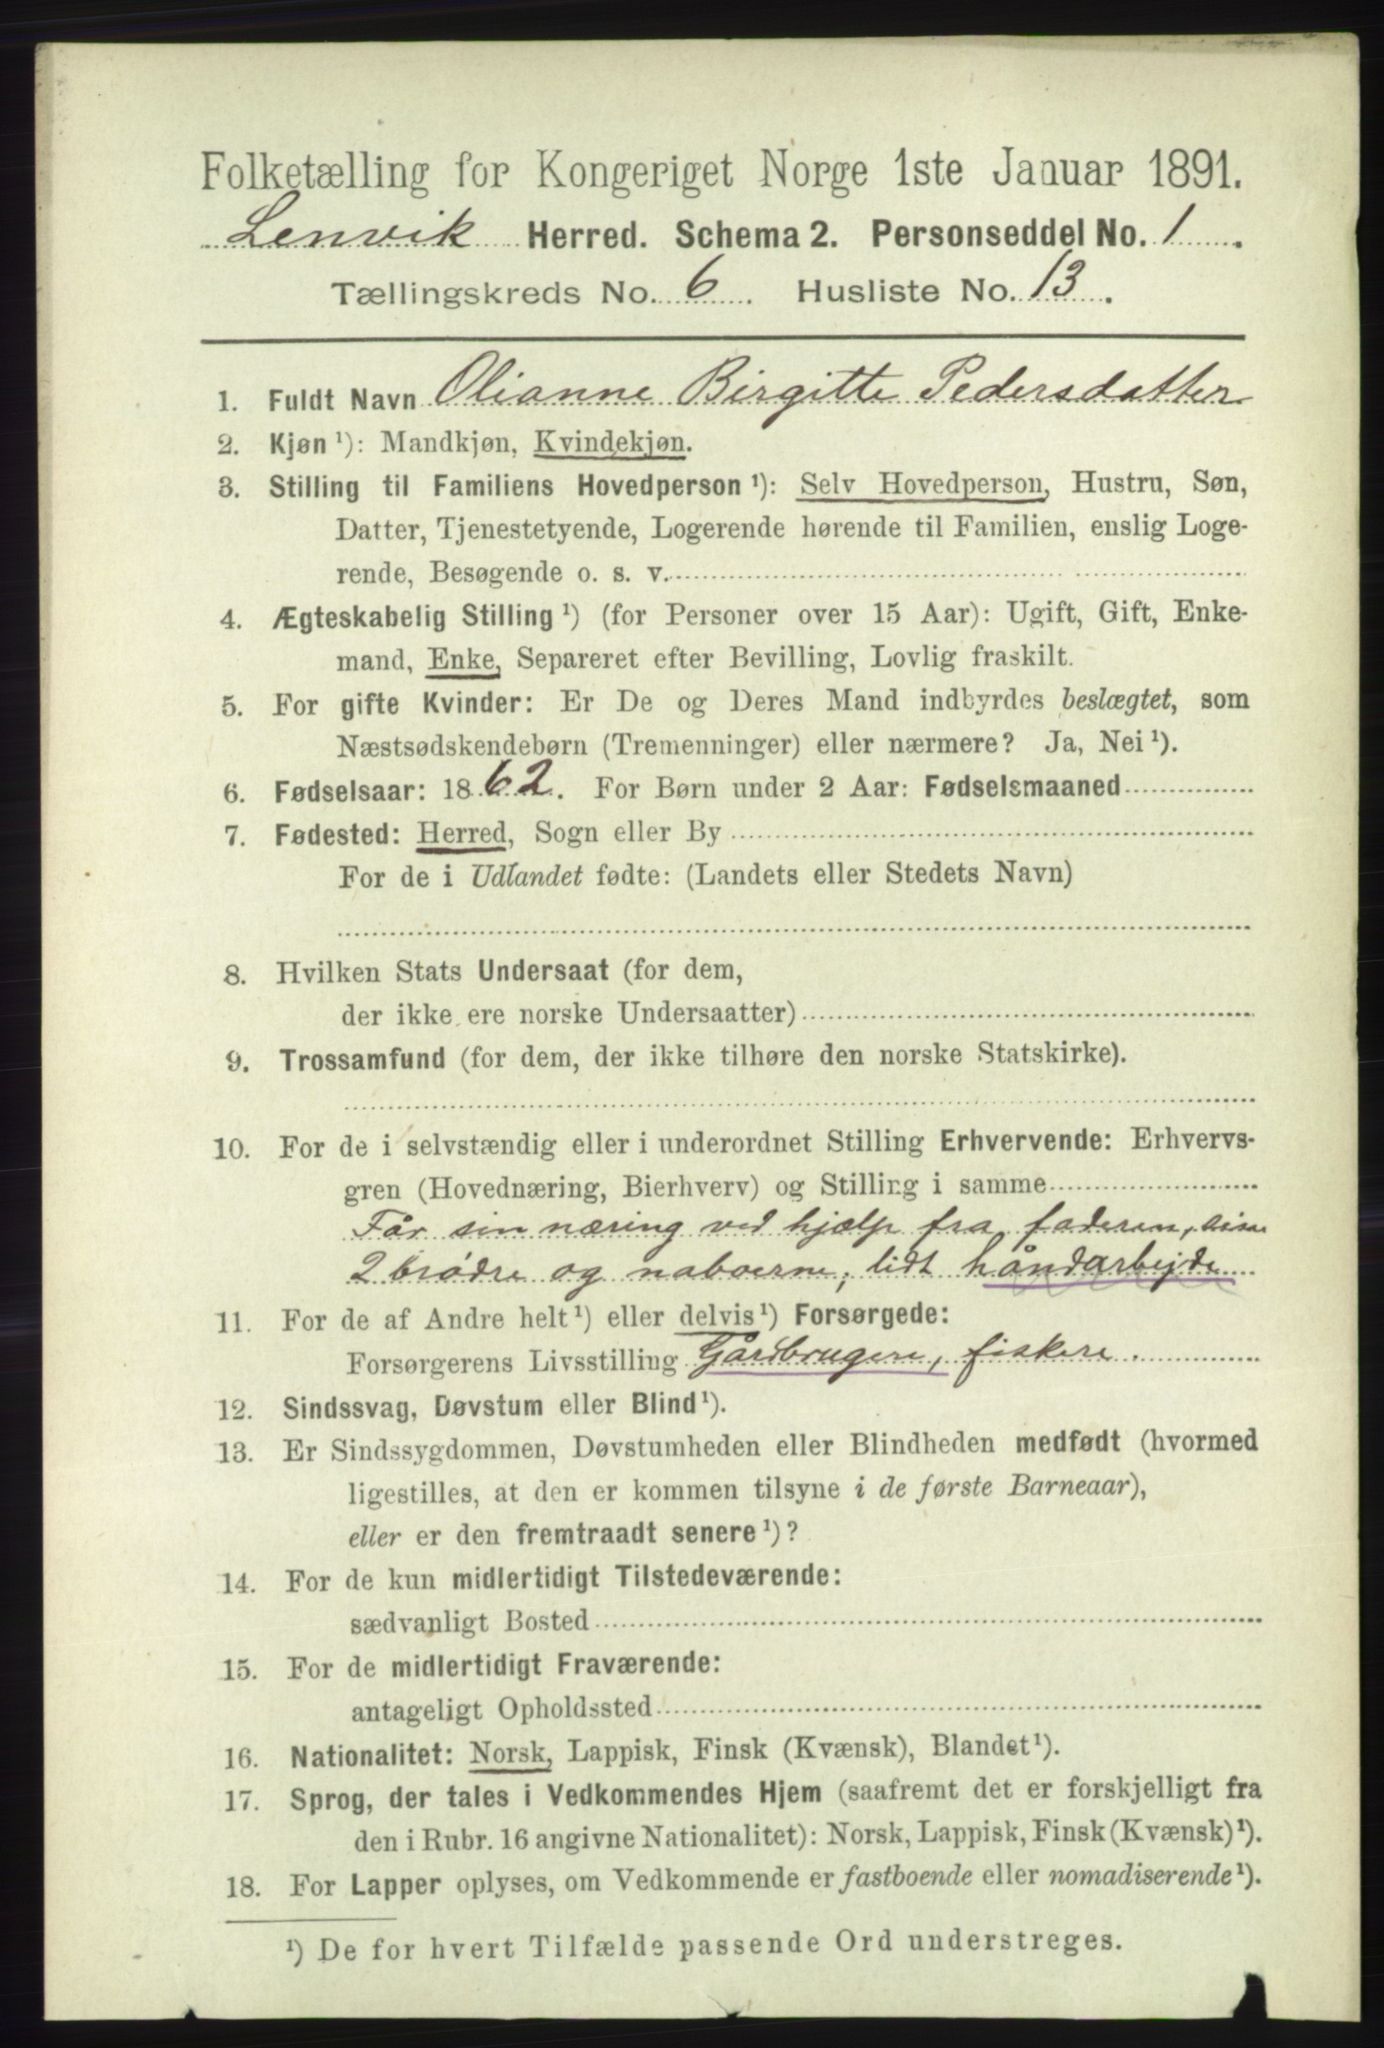 Folketælling for Kongeriget Norge 1ste Januar 1891.
Lenvik Herred. Schema 2. Personseddel No. 1.
Tællingskreds No. 6. Husliste No. 13.
1. Fuldt Navn Olianne Birgitte Pedersdatter
2. Kjøn ¹): Mandkjøn, Kvindekjøn.
3. Stilling til Familiens Hovedperson ¹): Selv Hovedperson, Hustru, Søn,
Datter, Tjenestetyende, Logerende hørende til Familien, enslig Loge-
rende, Besøgende o. s. v.
4. Ægteskabelig Stilling ¹) (for Personer over 15 Aar): Ugift, Gift, Enke-
mand, Enke, Separeret efter Bevilling, Lovlig fraskilt.
5. For gifte Kvinder: Er De og Deres Mand indbyrdes beslægtet, som
Næstsødskendebørn (Tremenninger) eller nærmere? Ja, Nei ¹).
6. Fødselsaar: 1862. For Børn under 2 Aar: Fødselsmaaned
7. Fødested: Herred, Sogn eller By
For de i Udlandet fødte: (Landets eller Stedets Navn)
8. Hvilken Stats Undersaat (for dem,
der ikke ere norske Undersaatter)
9. Trossamfund (for dem, der ikke tilhøre den norske Statskirke).
10. For de i selvstændig eller i underordnet Stilling Erhvervende: Erhvervs-
gren (Hovednæring, Bierhverv) og Stilling i samme
Får sin næring ved hjælp fra faderen,
2 brødre og naboerne; lidt håndarbejde
11. For de af Andre helt ¹) eller delvis ¹) Forsørgede:
Forsørgerens Livsstilling Gårdbrugere, fiskere.
12. Sindssvag, Døvstum eller Blind ¹).
13. Er Sindssygdommen, Døvstumheden eller Blindheden medfødt (hvormed
ligestilles, at den er kommen tilsyne i de første Barneaar),
eller er den fremtraadt senere ¹)?
14. For de kun midlertidigt Tilstedeværende:
sædvanligt Bosted
15. For de midlertidigt Fraværende:
antageligt Opholdssted
16. Nationalitet: Norsk, Lappisk, Finsk (Kvænsk), Blandet ¹).
17. Sprog, der tales i Vedkommendes Hjem (saafremt det er forskjelligt fra
den i Rubr. 16 angivne Nationalitet): Norsk, Lappisk, Finsk (Kvænsk) ¹).
18. For Lapper oplyses, om Vedkommende er fastboende eller nomadiserende ¹).
¹) De for hvert Tilfælde passende Ord understreges.